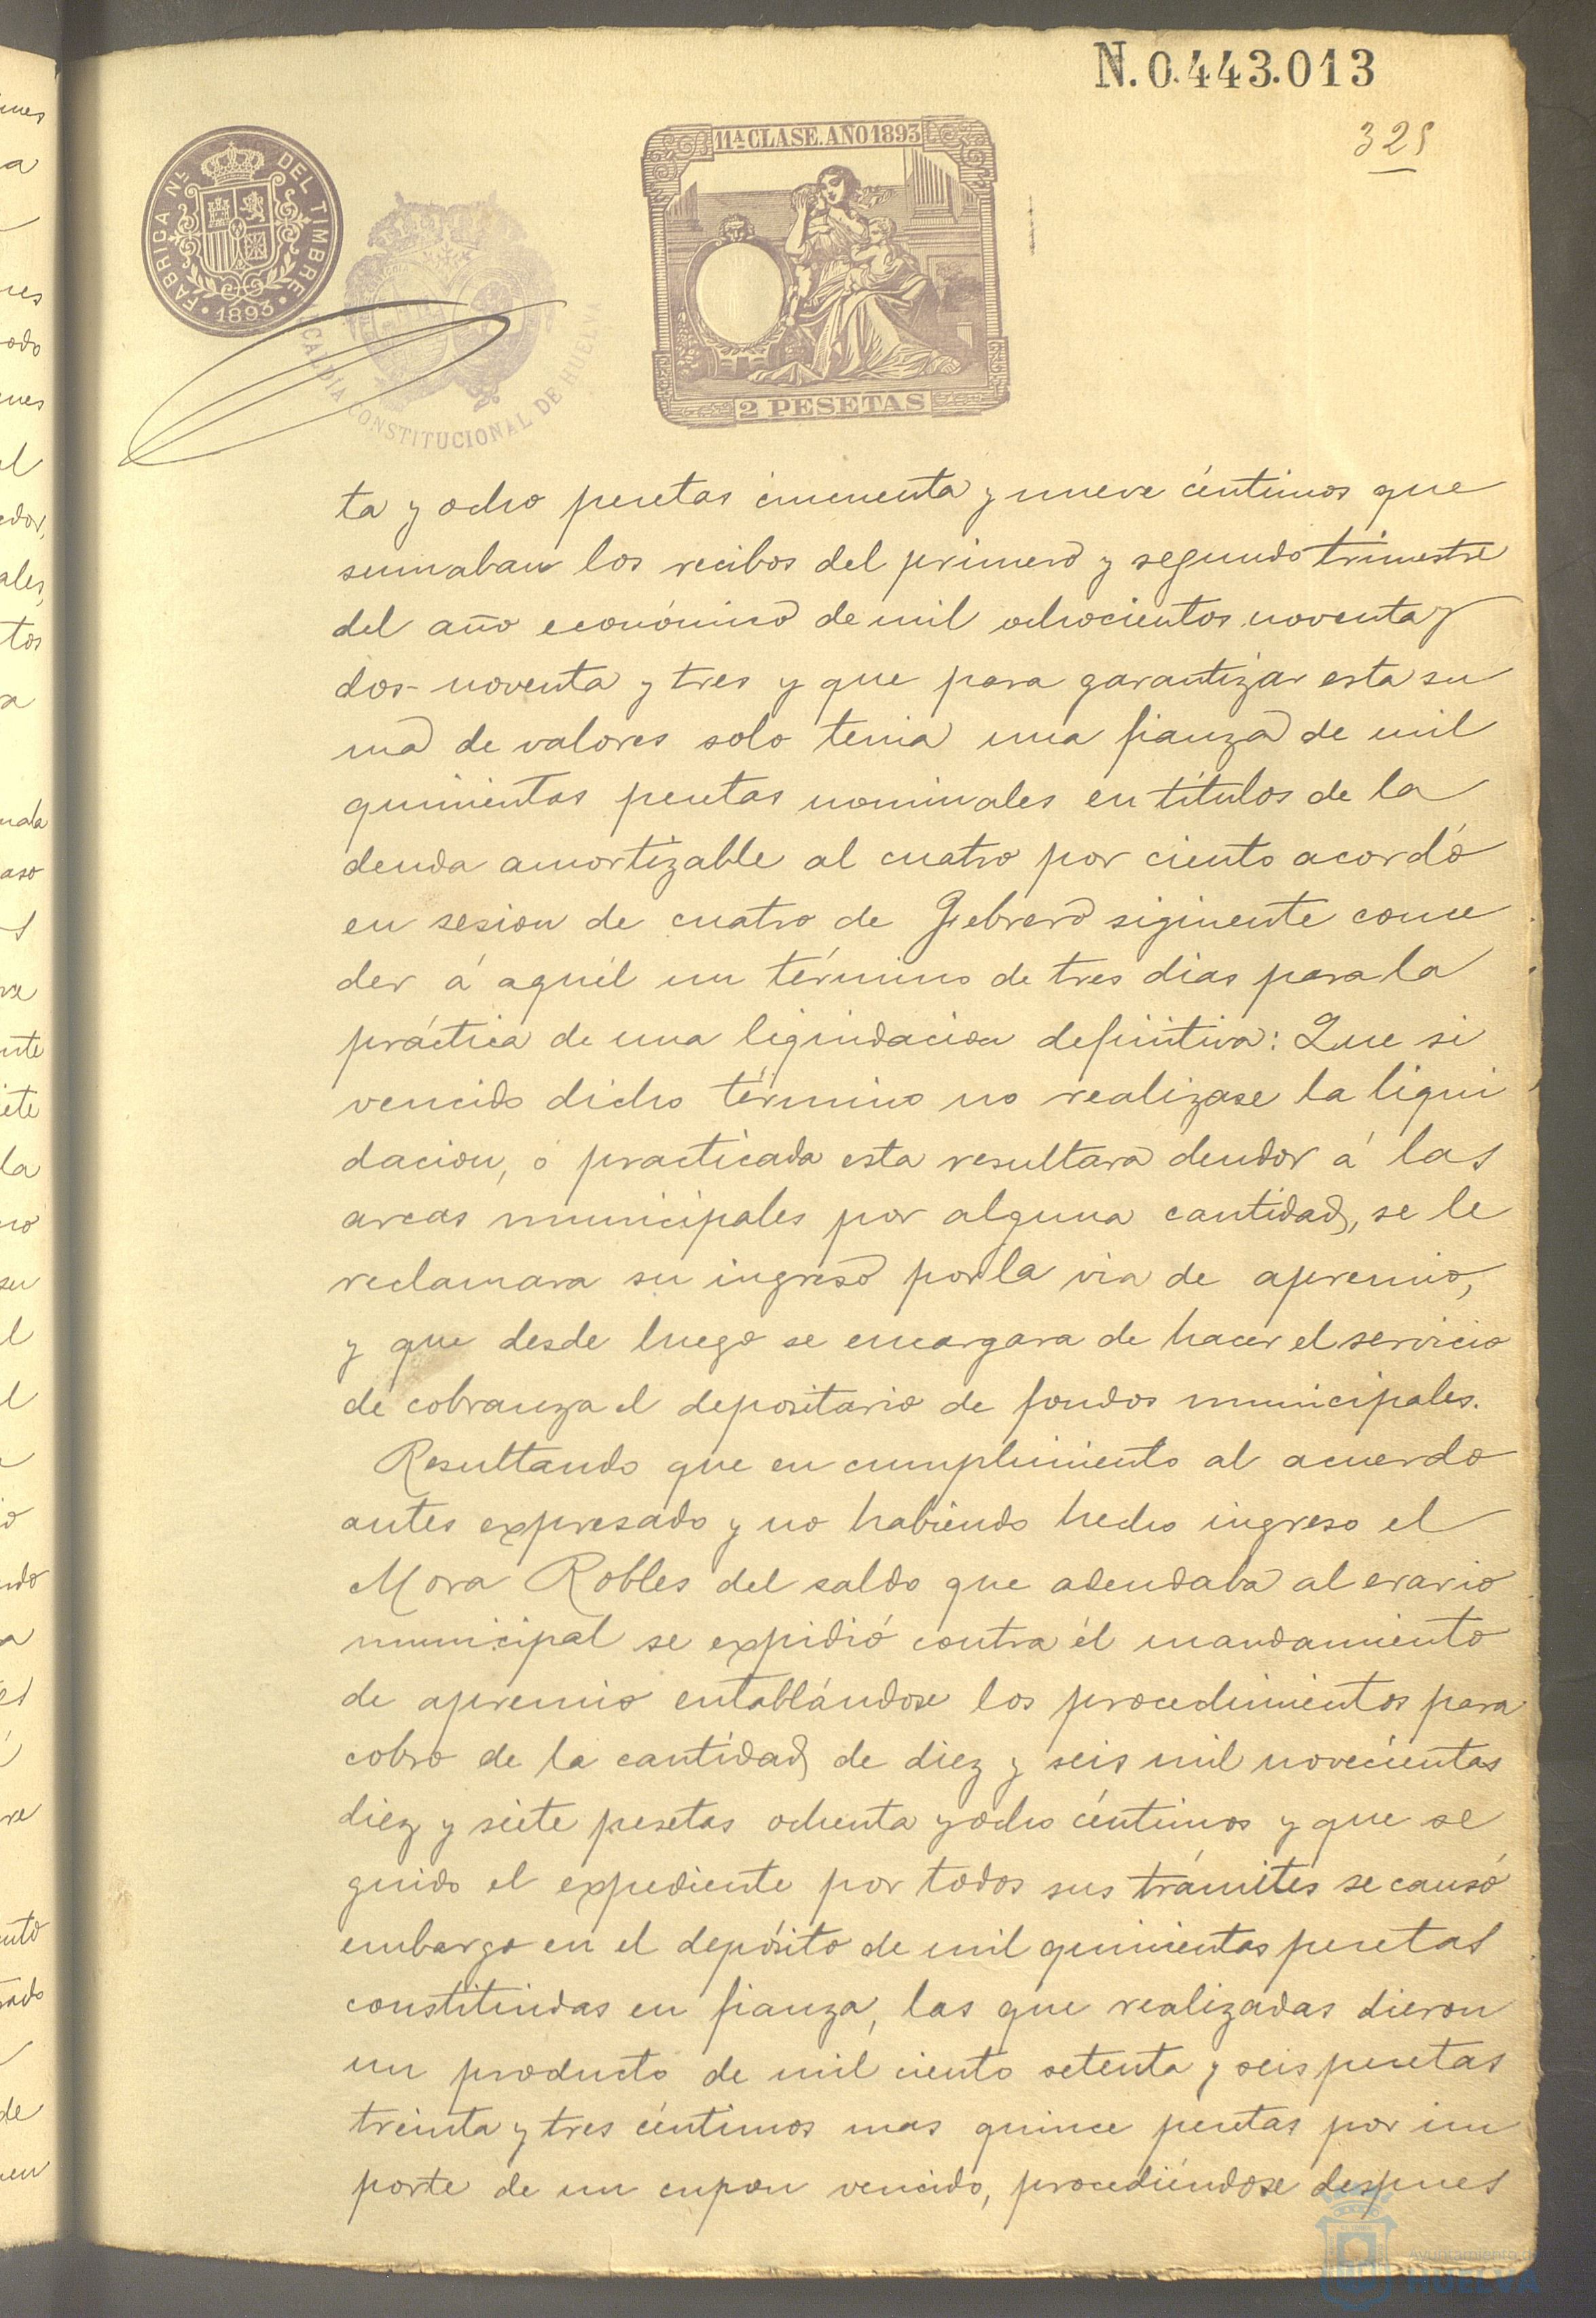 N.0.443.013
325
11ª CLASE. AÑO 1893
FABRICA NL. DEL TIMBRE
1893
ALCALDIA CONSTITUCIONAL DE HUELVA
2 PESETAS
ta y ocho pesetas cincuenta y nueve céntimos que
sumaban los recibos del primero y segundo trimestre
del año económico de mil ochocientos noventa y
dos-noventa y tres y que para garantizar esta su
ma de valores solo tenia una fianza de mil
quinientas pesetas nominales en títulos de la
deuda amortizable al cuatro por ciento acordó
en sesion de cuatro de Febrero siguiente conce
der á aquél un término de tres dias para la
práctica de una liquidacion definitiva: Que si
vencido dicho término no realizase la liqui
dacion, ó practicada esta resultara deudor á las
arcas municipales por alguna cantidad, se le
reclamara su ingreso por la via de apremio,
y que desde luego se encargara de hacer el servicio
de cobranza el depositario de fondos municipales.
Resultando que en cumplimiento al acuerdo
antes expresado y no habiendo hecho ingreso el
Mora Robles del saldo que adeudaba al erario
municipal se expidió contra él mandamiento
de apremio entablándose los procedimientos para
cobro de la cantidad de diez y seis mil novecientas
diez y siete pesetas ochenta y ocho céntimos y que se
guido el expediente por todos sus trámites se causó
embargo en el depósito de mil quinientas pesetas
constituidas en fianza, las que realizadas dieron
un producto de mil ciento setenta y seis pesetas
treinta y tres céntimos mas quince pesetas por im
porte de un cupon vencido, procediéndose despues
Ayuntamiento
HUELVA